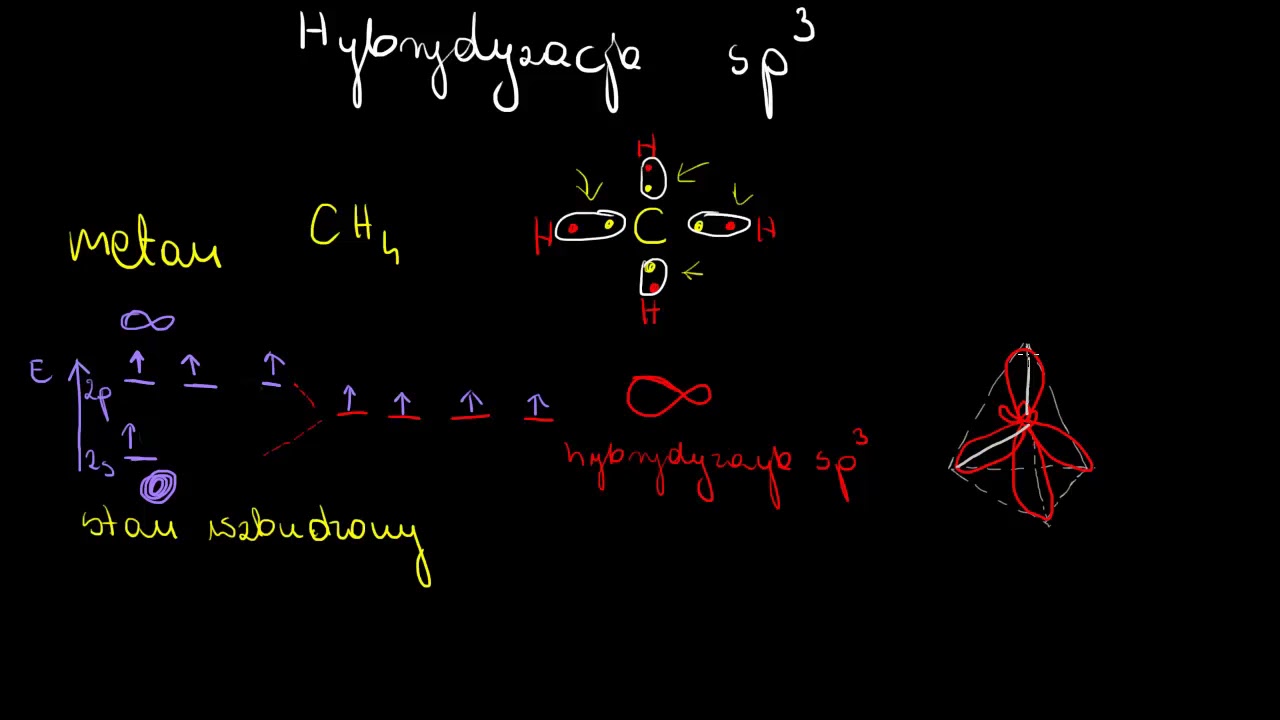 Hybrydyzacja sp³
H
H C H
H
metan CH₄
E
2p
2s
hybrydyzacja sp³
stan wzbudzony